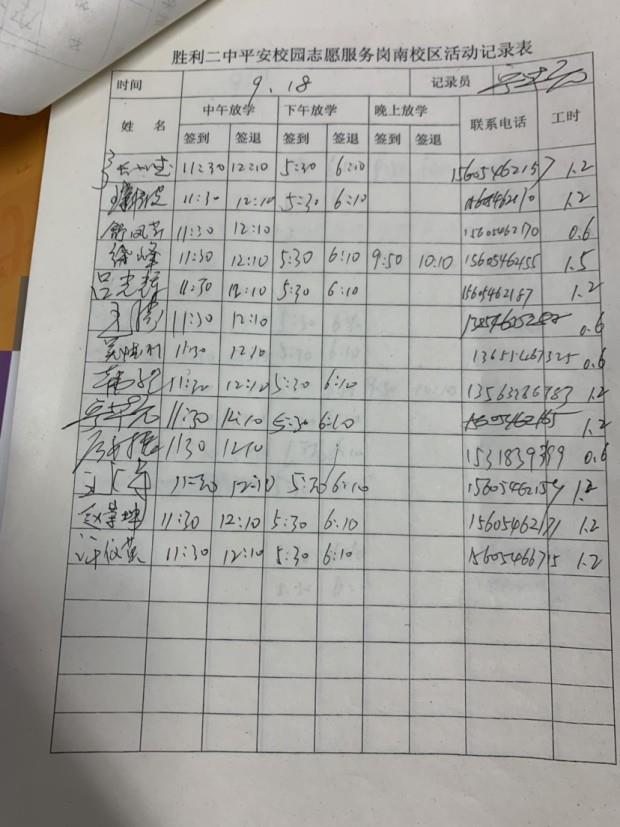 胜利二中平安校园志愿服务岗南校区活动记录表
时间 9.18 记录员
姓 名 中午放学 下午放学 晚上放学 联系电话 工时
签到 签退 签到 签退 签到 签退
11:30 12:10 5:30 6:10 15605462157 1.2
11:30 12:10 5:30 6:10 15605462170 1.2
舒凤芹 11:30 12:10 15605462170 0.6
徐峰 11:30 12:10 5:30 6:10 9:50 10:10 15605462455 1.5
吕光辉 11:30 12:10 5:30 6:10 15605462187 1.2
11:30 12:10 0.6
11:30 12:10 13655467325 0.6
11:30 12:10 5:30 6:10 13563286783 1.2
11:30 12:10 5:30 6:10 15605462165 1.2
11:30 12:10 0.6
11:30 12:10 5:30 6:10 15605462159 1.2
赵景坤 11:30 12:10 5:30 6:10 15605462171 1.2
许仪英 11:30 12:10 5:30 6:10 15605466715 1.2